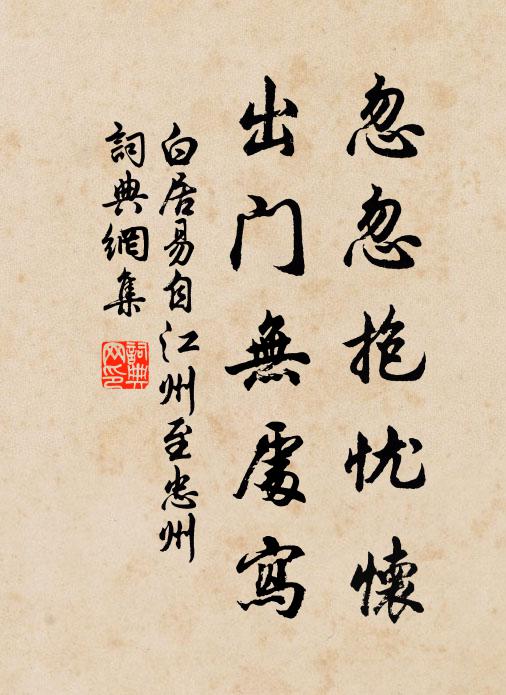 忽忽抱忧懷
出门無處寫
白居易自江州至忠州
詞典網集
詞典網印